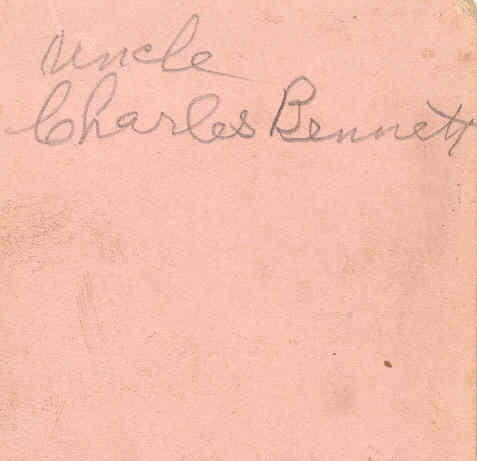 Uncle
Charles Bennett